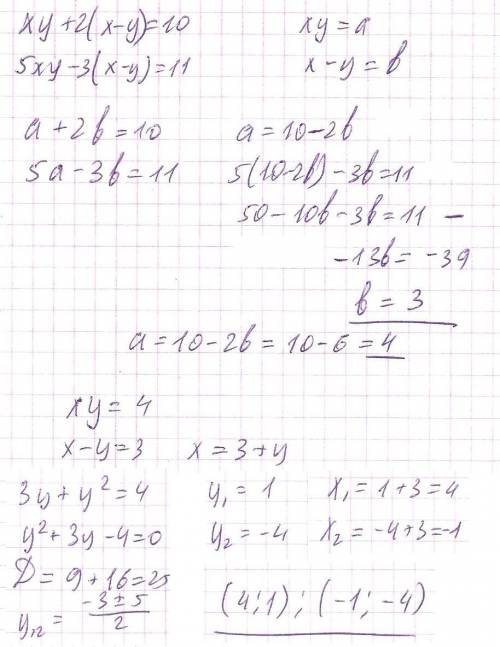 xy+2(x-y)=10 xy=a
5xy-3(x-y)=11 x-y=b
a+2b=10 a=10-2b
5a-3b=11 5(10-2b)-3b=11
50-10b-3b=11 -
-13b= -39
b = 3
a=10-2b=10-6=4
xy= 4
x-y=3 x=3+y
3y+y²=4 y₁ = 1 x₁=1+3=4
y²+3y-4=0 y₂ = -4 x₂=-4+3=-1
D= 9+16=25
y₁,₂ = (-3±5)/2 (4;1); (-1; -4)